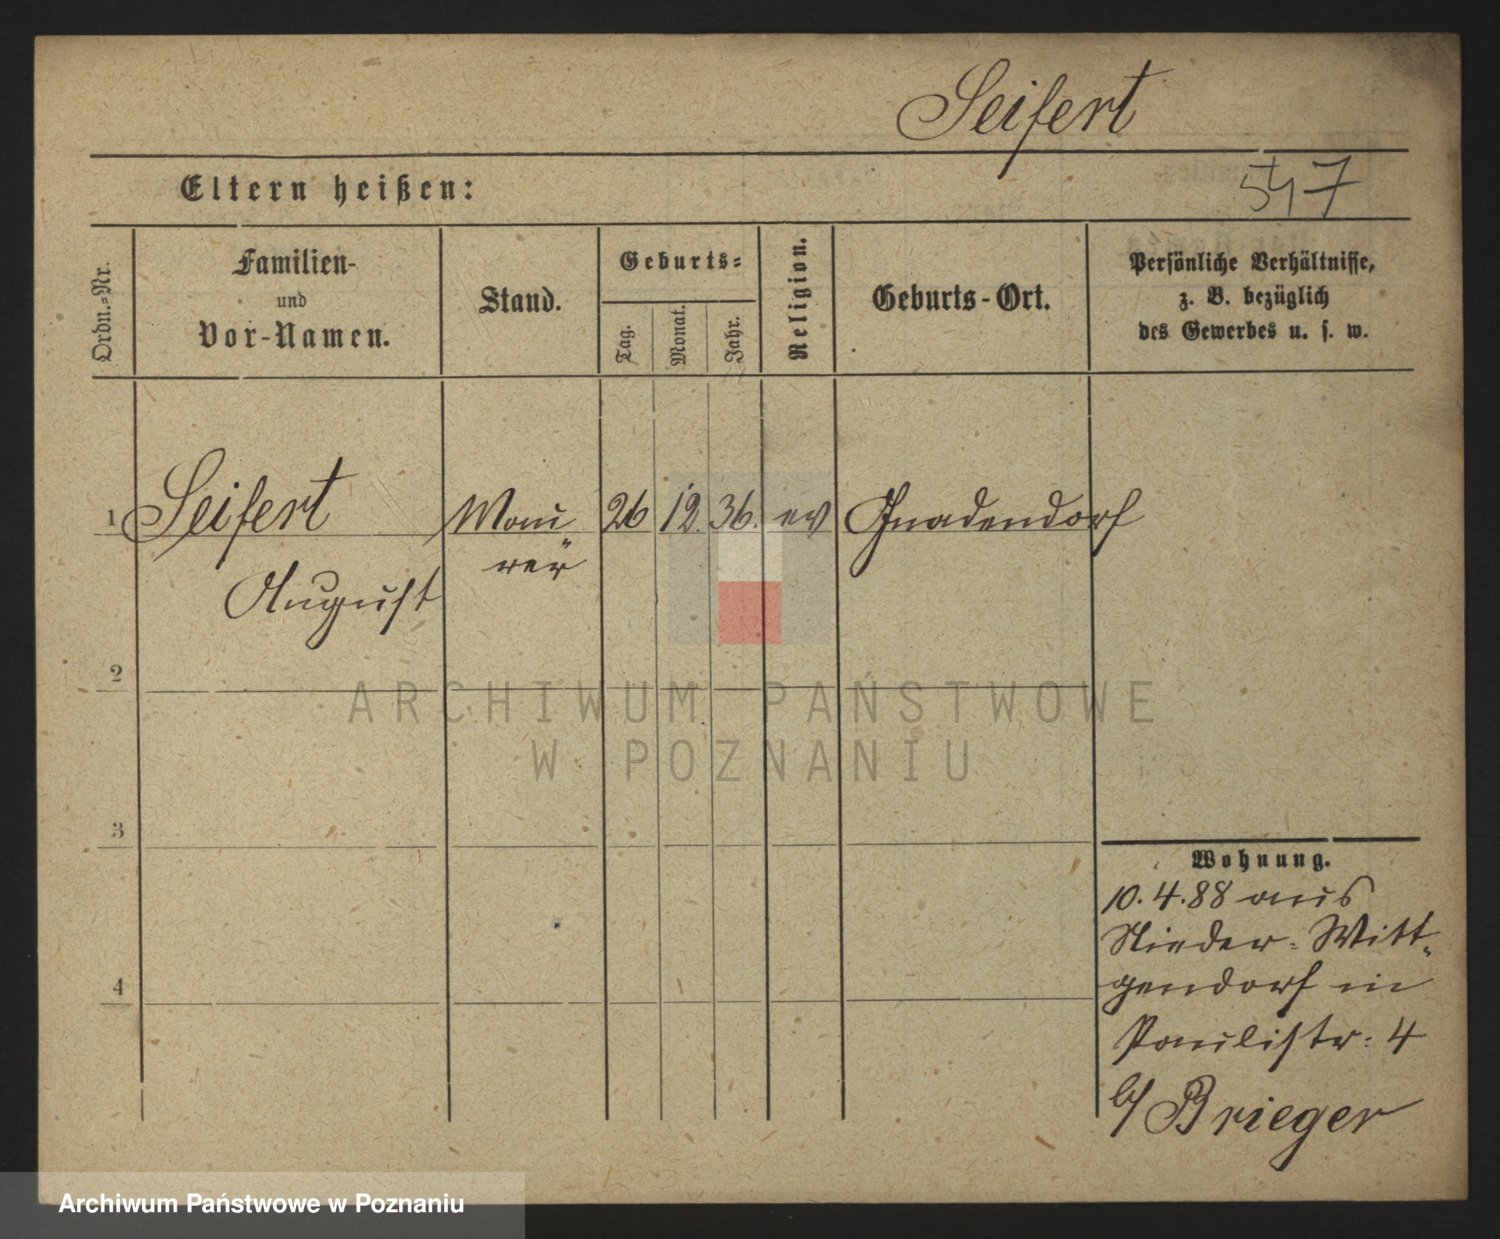 Seifert
547
Eltern heißen:
Ordn.-Nr.
Familien-
und
Vor-Namen.
Stand.
Geburts-
Tag.
Monat.
Jahr.
Religion.
Geburts-Ort.
Persönliche Verhältnisse,
z. B. bezüglich
des Gewerbes u. s. w.
1 Seifert Mau 26 12. 36. ev Gnadendorf
rer
August
2
ARCHIWUM PAŃSTWOWE
W POZNANIU
3
Wohnung.
10. 4. 88 aus
Nieder-Witt-
gendorf in
4
Paulistr: 4
b/ Brieger
Archiwum Państwowe w Poznaniu